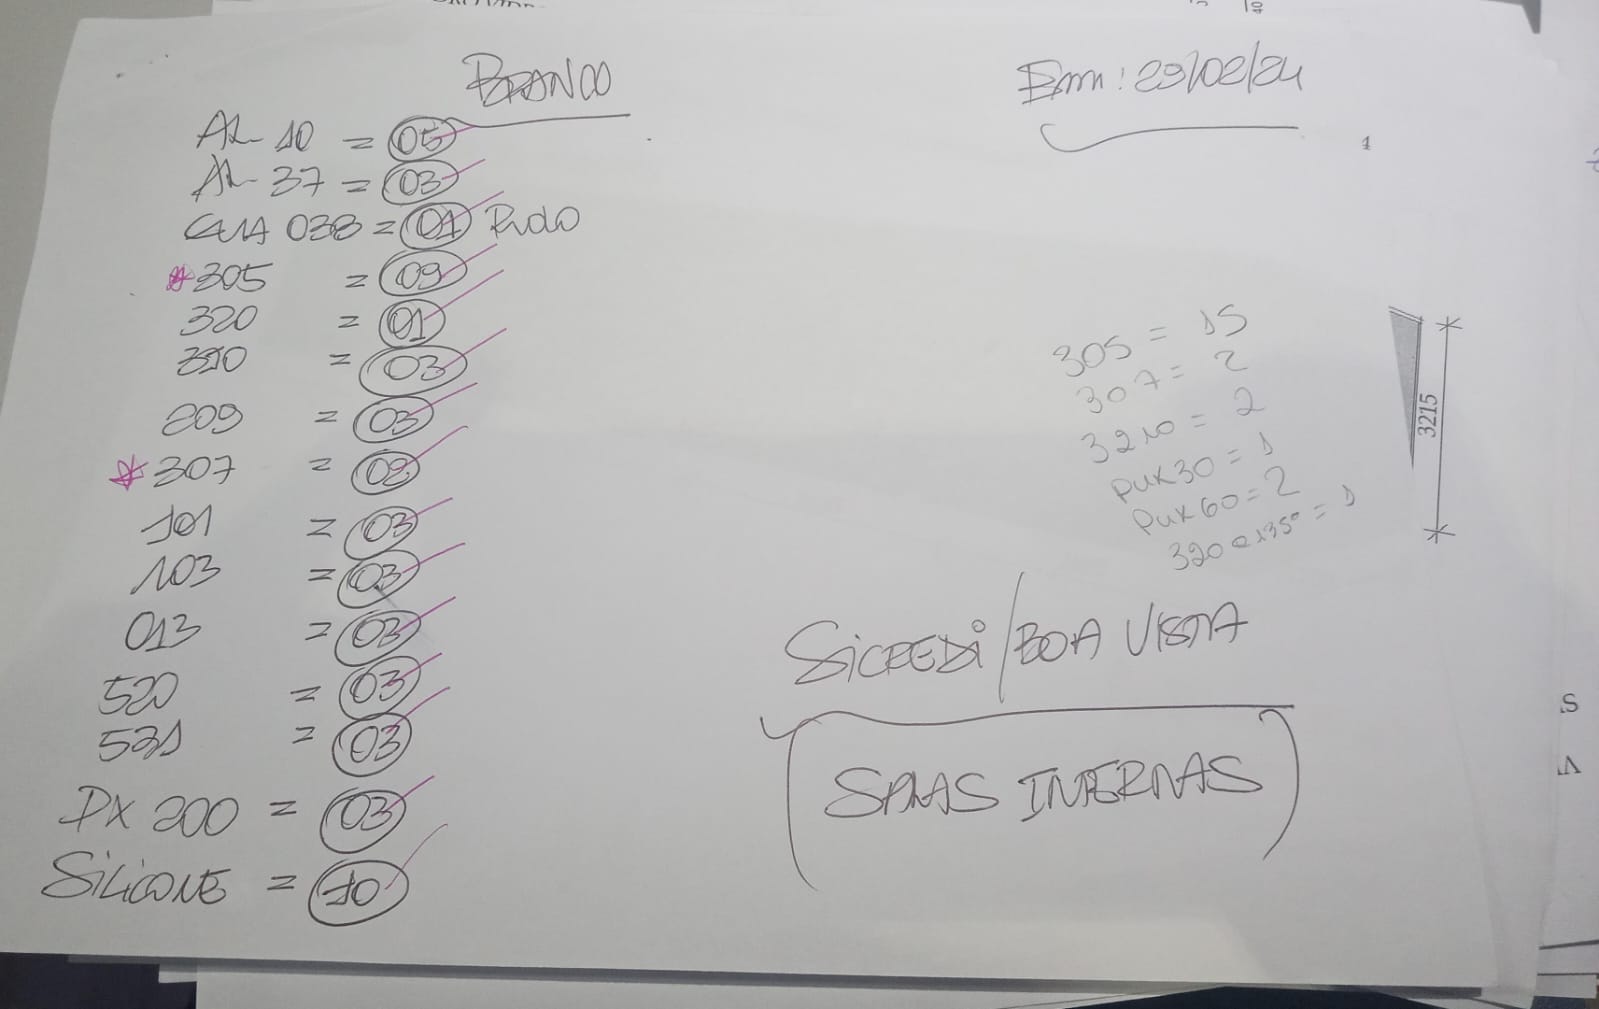 BRANCO
Em: 29/02/24
AL 10 = 05
AL 37 = 03
GUA 038 = 01 ROLO
*305 = 09
320 = 01
310 = 03
209 = 03
*307 = 02
101 = 03
103 = 03
013 = 03
520 = 03
531 = 03
PX 200 = 03
SILICONE = 10
1
305 = 15
307 = 2
3210 = 2
PUX30 = 1
PUX60 = 2
320 e 135° = 1
3215
SICREDI/BOA VISTA
SALAS INTERNAS